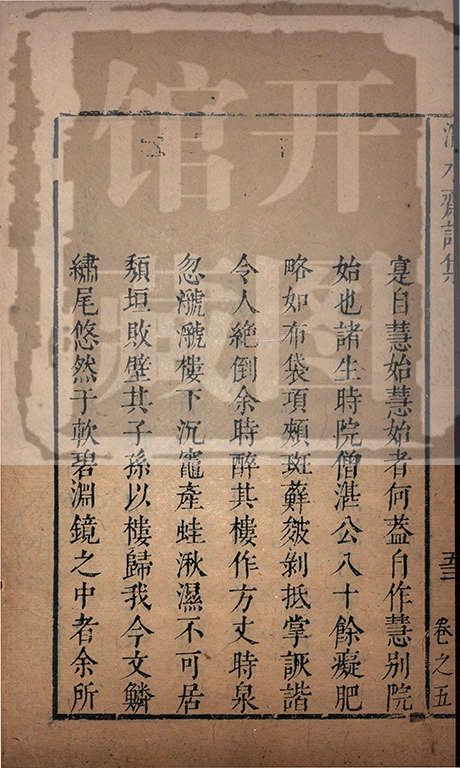 寔自慧始慧始者何葢自作慧别院
始也諸生時院僧湛公八十餘癡肥
略如布袋項頰斑蘚皴剝抵掌詼諧
令人絶倒余時醉其樓作方丈時泉
忽㶁㶁樓下沉竈產蛙湫濕不可居
頽垣敗壁其子孫以樓歸我今文鱗
繡尾悠然于軟碧淵鏡之中者余所
卷之五
开图馆藏